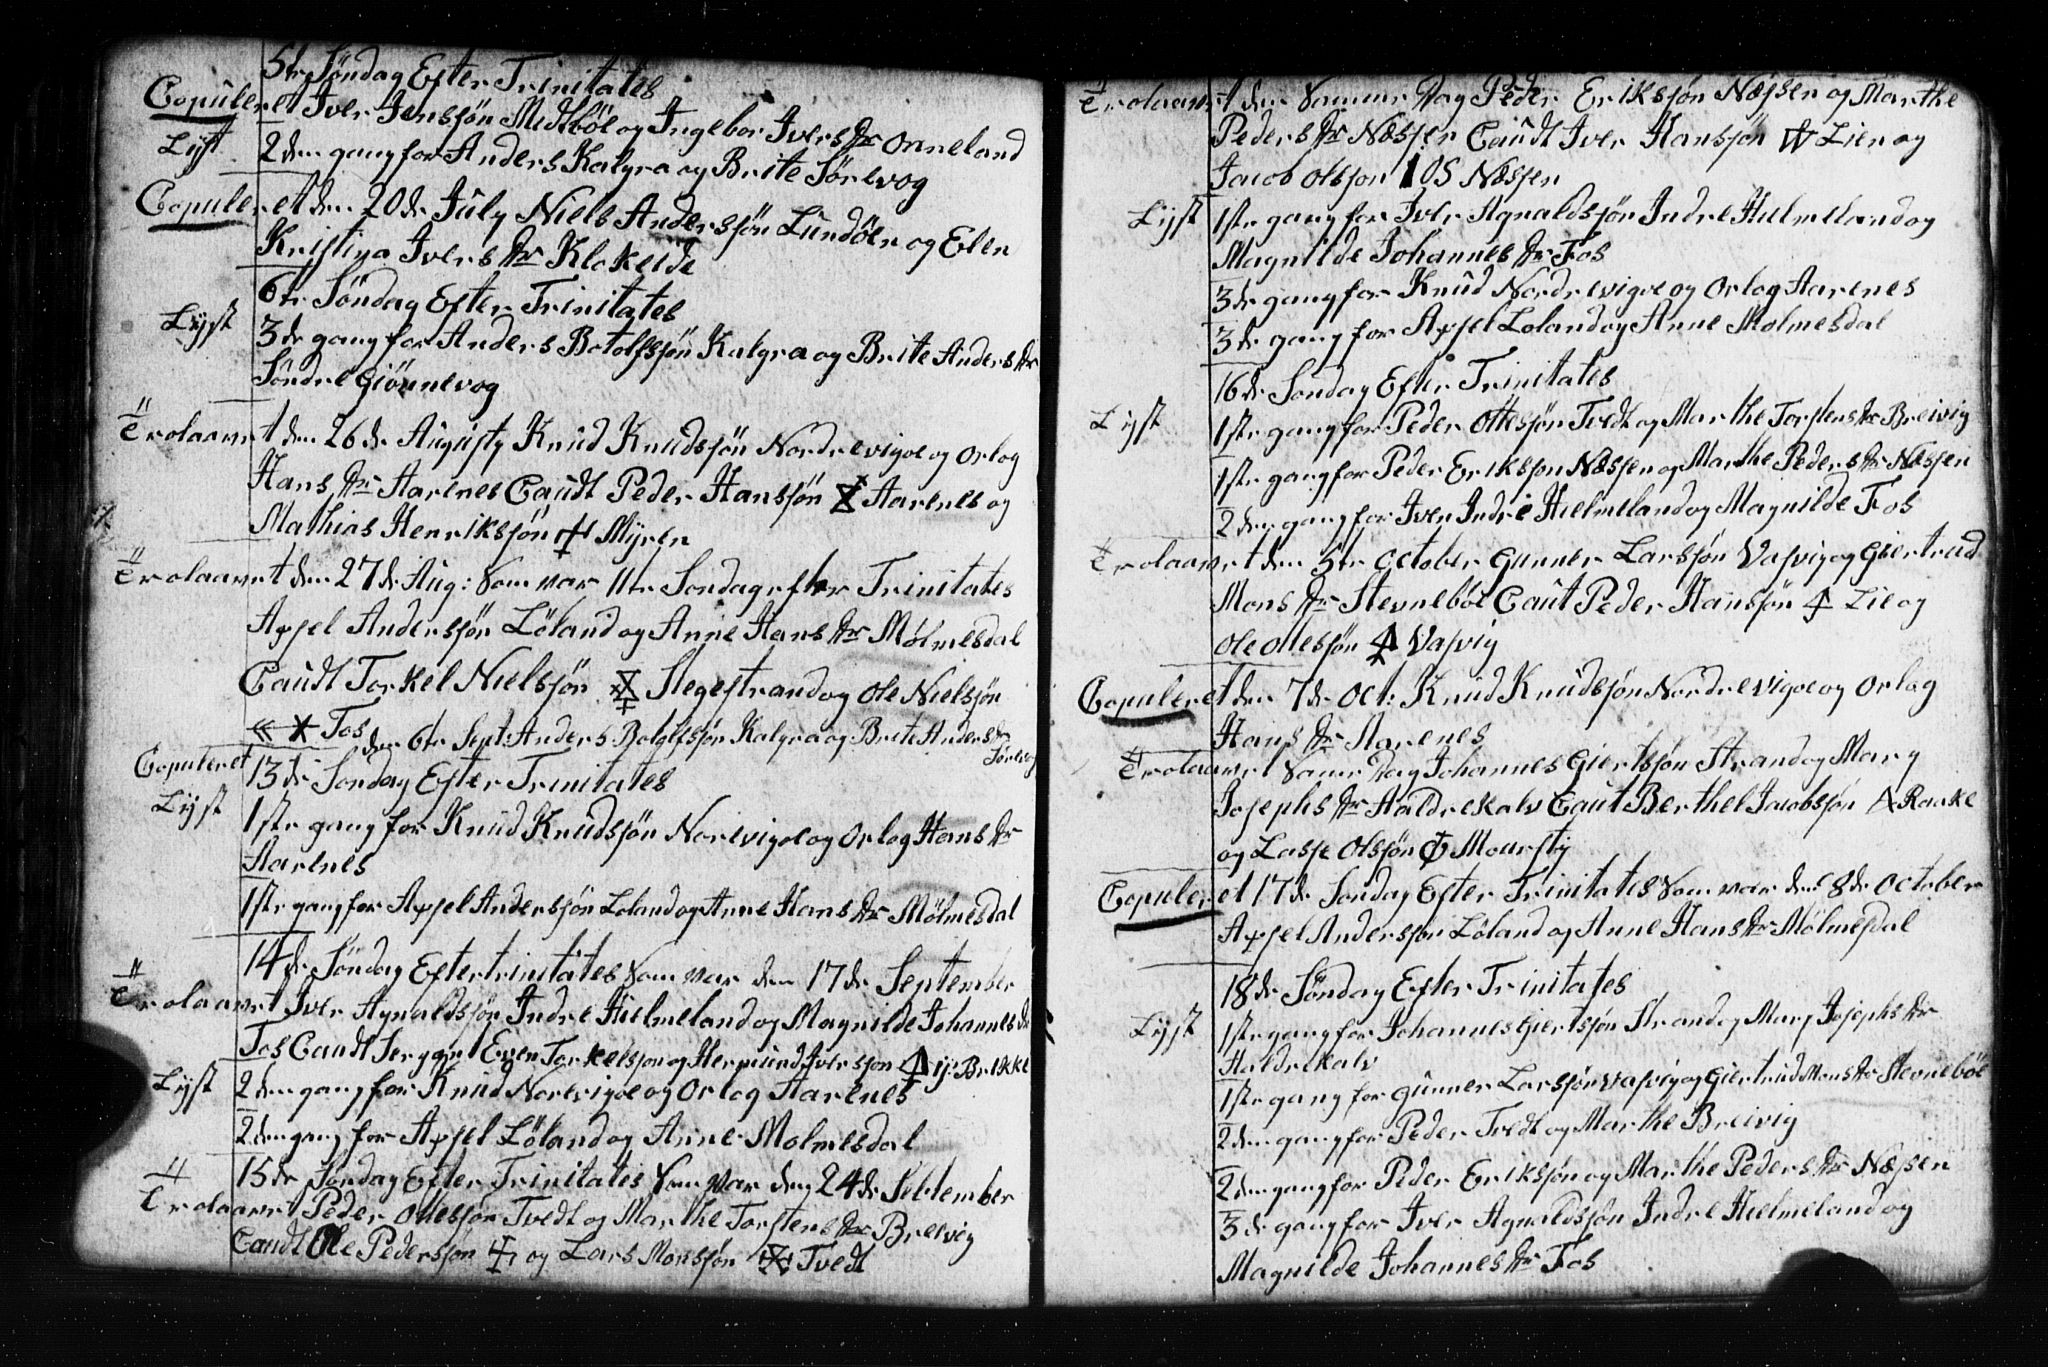 5te Söndag Efter Trinitates
Copuleret Iver Jensjön Midtböe og Ingebor Ivers dtr Onneland
Lyst 2den gang for Anders Kalgra og Brite Sörevog
Copuleret den 20de July Niels Andersjön Lundöen og Elen
Kristina Ivers dtr Klokeide
6te Söndag Efter Trinitates
Lyst 3de gang for Anders Botolfsjön Kalgra og Brite Anders dtr
Söndre Giönnevog
Trolaavet den 26de Augusty Knud Knudsjön Nordrevigoe og Orlog
Hans dtr Aarenes Caudt Peder Hansjön Aarenes og
Mathias Henriksjön Myren
Trolaavet den 27de Aug: Som var 11te Sondag efter Trinitates
Axsel Andersjön Löland og Anne Hans dtr Mölmesdal
Caudt Torkel Nielsjön Hegestrand og Ole Nielsjön
Fos
Copuleret den 6te Sept: Anders Botolfsjön Kalgra og Brite Anders dtr
Sörevog
13de Söndag Efter Trinitates
Lyst 1ste gang for Knud Knudsjön Norevigoe og Orlog Hans dtr
Aarenes
1ste gang for Axsel Andersjön Löland og Anne Hans dtr Mölmesdal
14de Söndag Efter trinitates Som var den 17de September
Trolaavet Iver Agnaldsjön Indre Hielmeland og Magnilde Johannes dr
Fos Caudt Sergent Even Torkelsjon og Hermund Iversjon Brekke
Lyst 2den gang for Knud Norevigoe og Orlog Aarenes
2den gang for Axsel Löland og Anne Molmesdal
15de Söndag Efter Trinitates Som var den 24de Sebtember
Trolaavet Peder Ottesjön Tvedt og Marthe Torstens dtr Breivig
Caudt Ole Pedersjön og Lars Monsjön Tvedt
Trolaavet den Samme Dag Peder Eriksjön Næsjen og Marthe
Peders dtr Næsjen Caudt Iver Hansjön Lien og
Jacob Olsjon IOS Næsjen
Lyst 1ste gang for Iver Agnaldsjön Indre Hielmeland og
Magnilde Johannes dtr Fos
3de gang for Knud Nordrevigoe og Orlog Aarenes
3de gang for Axsel Loland og Anne Molmesdal
16de Söndag Efter Trinitates
Lyst 1ste gang for Peder Ottesjön Tvedt og Marthe Torstens dtr Breivig
1ste gang for Peder Eriksjön Næsjen og Marthe Peders dtr Næsjen
2den gang for Iver Indre Hielmeland og Magnilde Fos
Trolaavet den 5te October Gunner Larsjön Vasvig og Giertrud
Mons dtr Stevneböe Caut Peder Hansjön Lie og
Ole Olesjön Vasvig
Copuleret den 7de Oct: Knud Knudsjön Nordrevigoe og Orlog
Hans dtr Aarenes
Trolaavet Same Dag Johannes Giertsjön Strand og Mary
Josephs dtr Haldrekalv Caut Berthel Jacobsjön Raake
og Lasse Olsjön Moursty
Copuleret 17de Söndag Efter Trinitates Som var den 8de October
Axsel Andersjön Löland og Anne Hans dtr Mölmesdal
18de Söndag Efter Trinitates
Lyst 1ste gang for Johannes Giertsjön Strand og Mary Josephs dtr
Haldrekalv
1ste gang for Gunner Larsjön Vasvig og Giertrud Mons dtr Stevneböe
2den gang for Peder Tvedt og Marthe Breivig
2den gang for Peder Eriksjön og Marthe Peders dtr Næsjen
3de gang for Iver Agnaldsjön Indre Hielmeland og
Magnilde Johannes dtr Fos